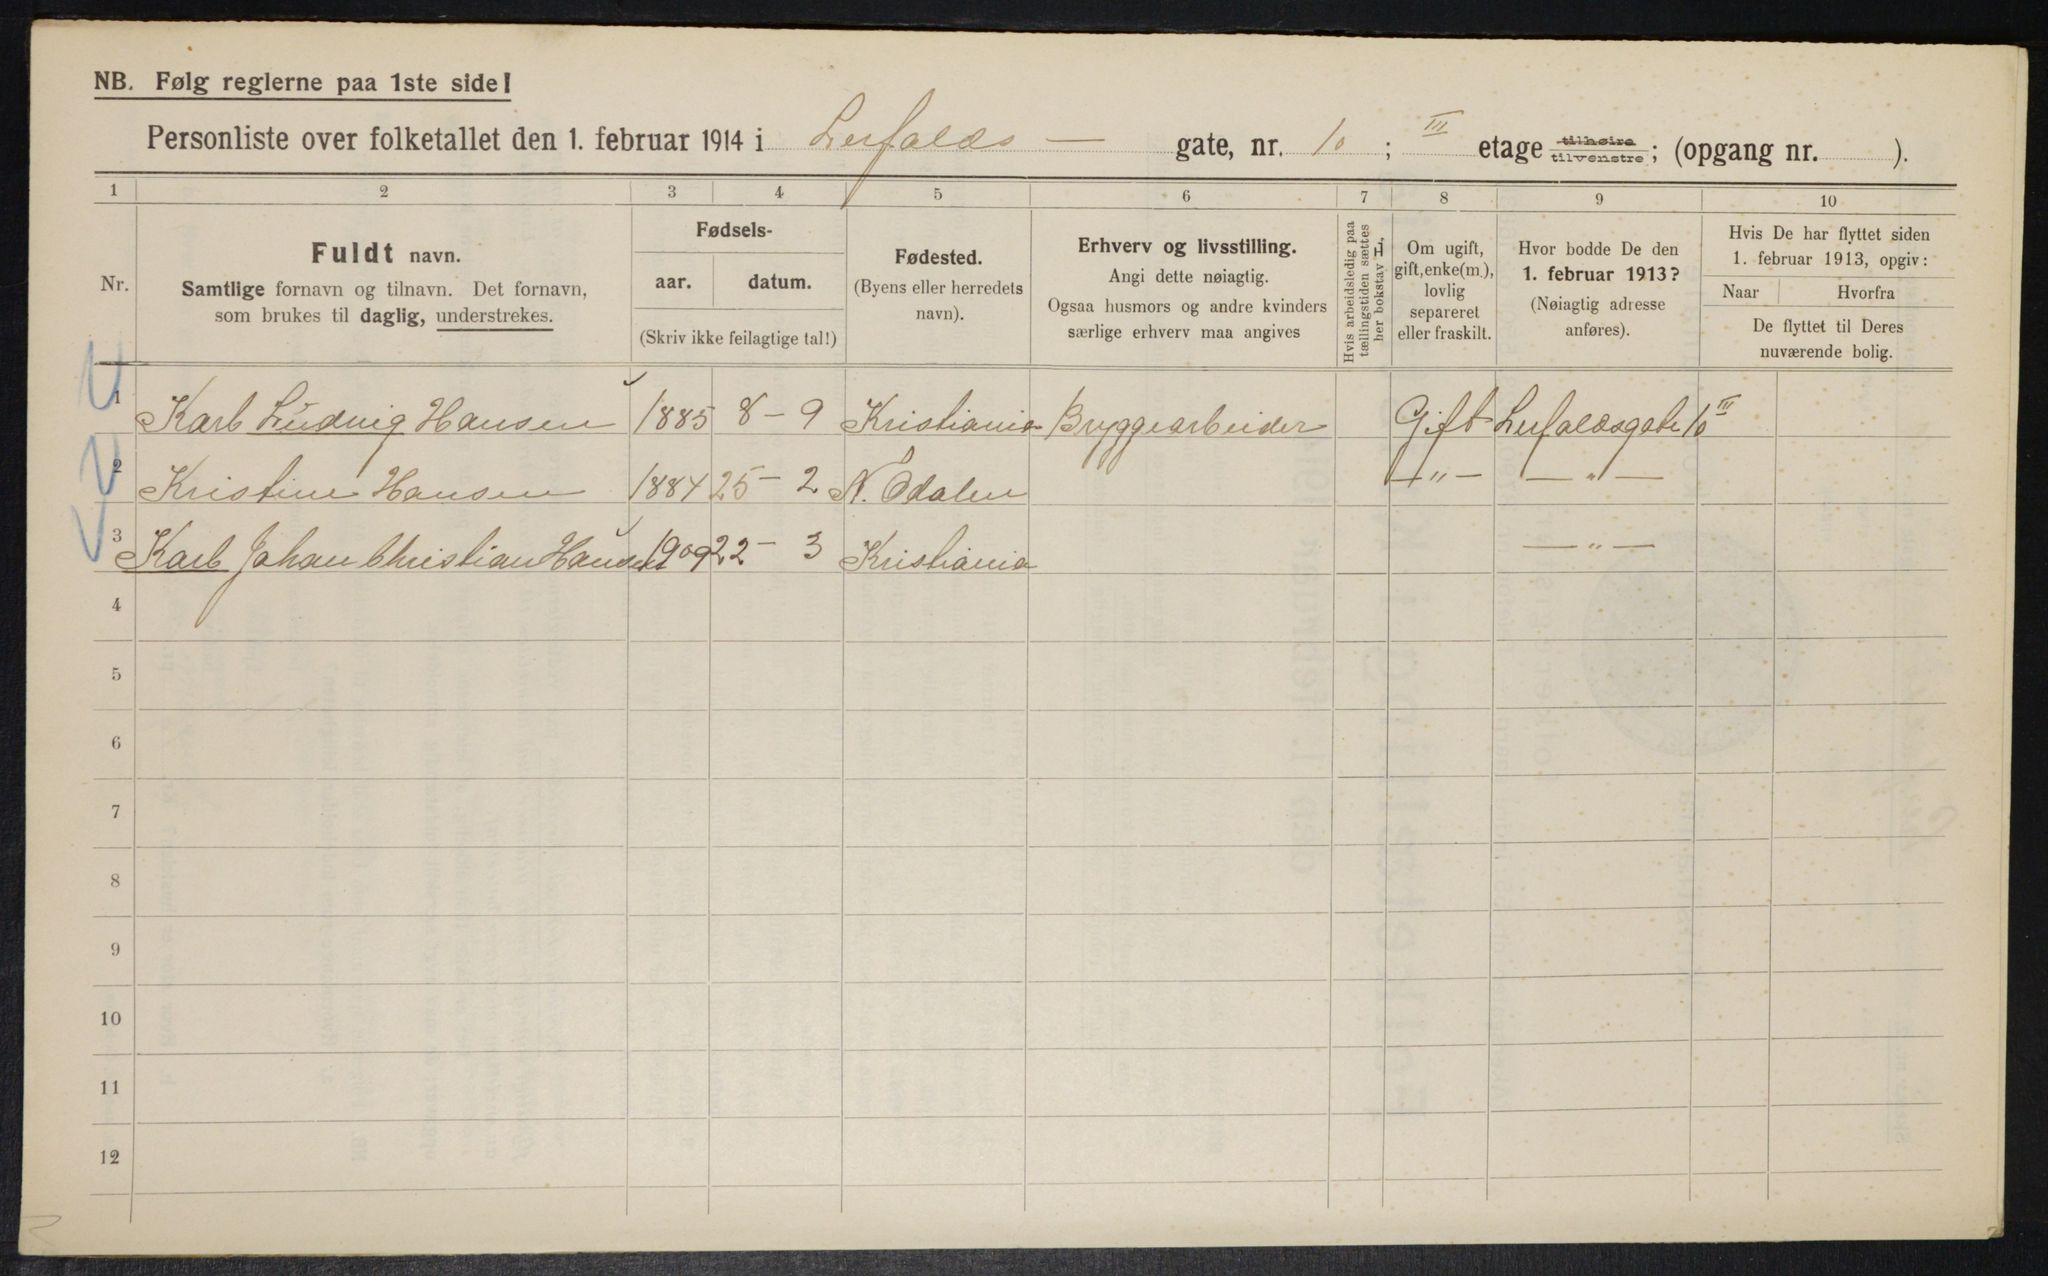 NB. Følg reglerne paa 1ste side!
Personliste over folketallet den 1. februar 1914 i Lerfalds — gate, nr. 10 ; III etage tilhøire tilvenstre ; (opgang nr. ).
1 2 3 4 5 6 7 8 9 10
Nr.
Fuldt navn.
Samtlige fornavn og tilnavn. Det fornavn,
som brukes til daglig, understrekes.
Fødsels-
aar. datum.
(Skriv ikke feilagtige tal!)
Fødested.
(Byens eller herredets
navn).
Erhverv og livsstilling.
Angi dette nøiagtig.
Ogsaa husmors og andre kvinders
særlige erhverv maa angives
Hvis arbeidsledig paa
tællingstiden sættes
her bokstav L.
Om ugift,
gift, enke(m.),
lovlig
separeret
eller fraskilt.
Hvor bodde De den
1. februar 1913?
(Nøiagtig adresse
anføres).
Hvis De har flyttet siden
1. februar 1913, opgiv:
Naar Hvorfra
De flyttet til Deres
nuværende bolig.
1 Karl Ludvig Hansen 1885 8 – 9 Kristiania Bryggearbeider Gift Lerfaldsgate 10 III
2 Kristine Hansen 1884 25 – 2 N. Odalen — " — — " —
3 Karl Johan Christian Hansen 1909 22 – 3 Kristiania — " —
4
5
6
7
8
9
10
11
12